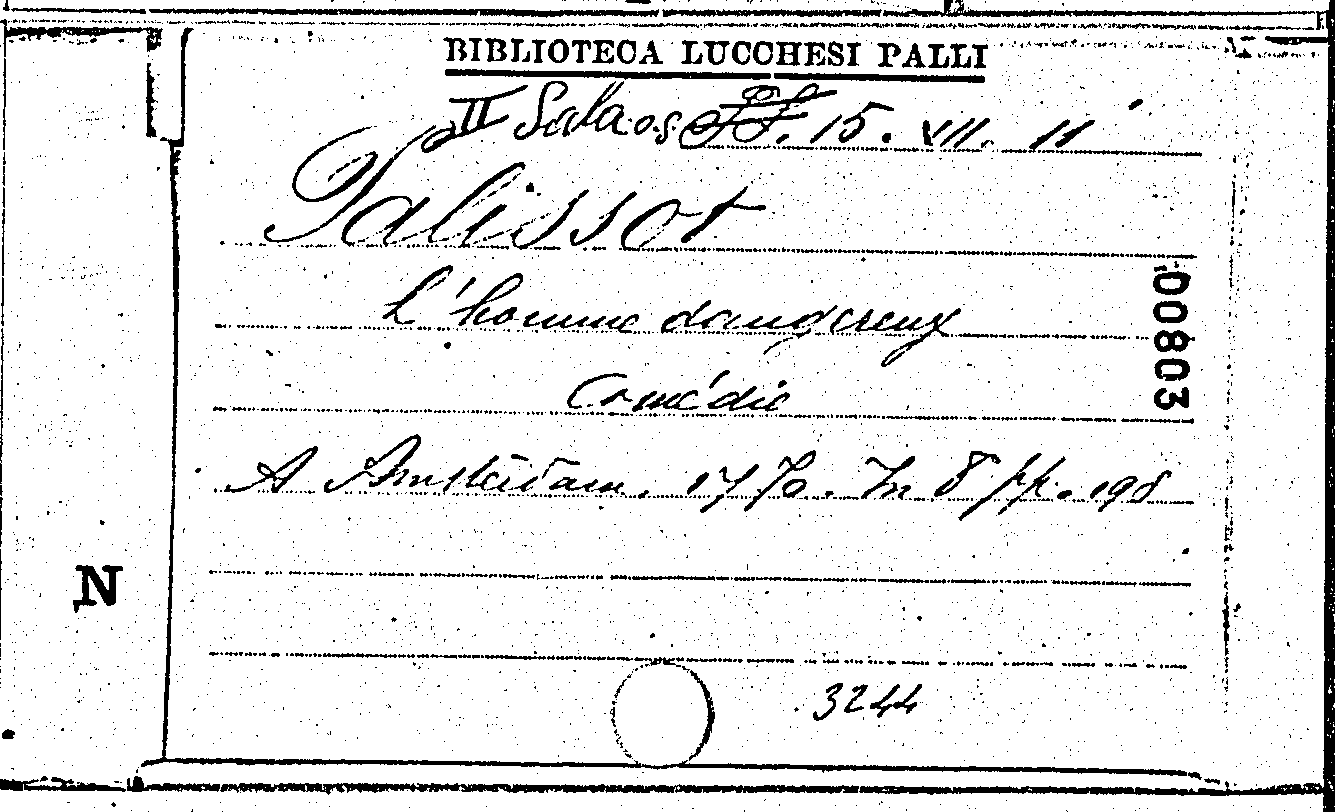 BIBLIOTECA LUCCHESI PALLI
II Sala 15. VII. 11
Palissot
L'homme dangereux
Comédie
A Amsterdam. 1770. In 8 pp. 198
00803
N
3244